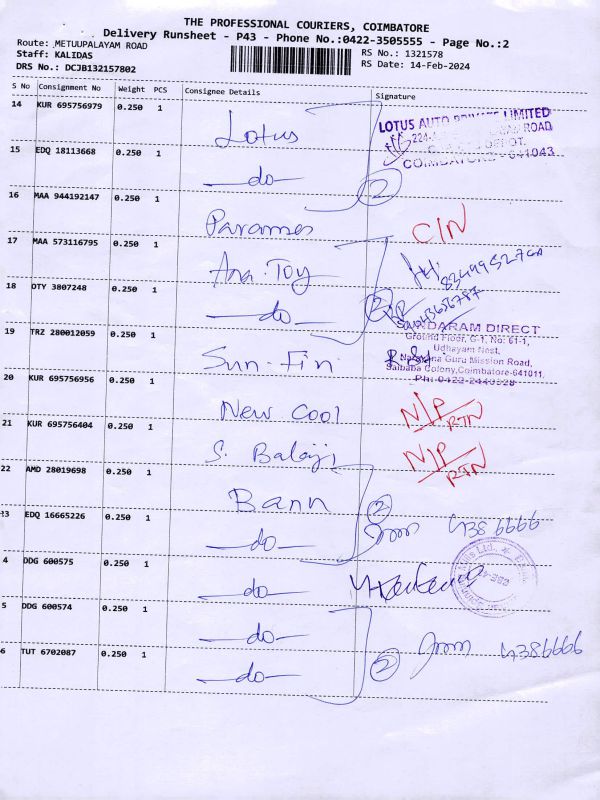 THE PROFESSIONAL COURIERS, COIMBATORE
Delivery Runsheet - P43 - Phone No.:0422-3505555 - Page No.:2
Route: METUUPALAYAM ROAD
Staff: KALIDAS
DRS No.: DCJB132157802
RS No.: 1321578
RS Date: 14-Feb-2024
S No Consignment No Weight PCS Consignee Details Signature
14 KUR 695756979 0.250 1 Lotus
LOTUS AUTO PRIVATE LIMITED
ROAD
COIMBATORE - 641043
15 EDQ 18113668 0.250 1 —do—
2
16 MAA 944192147 0.250 1 Parames
C/N
17 MAA 573116795 0.250 1 Ana Toy
18 OTY 3807248 0.250 1 —do—
2
19 TRZ 280012059 0.250 1 Sun-Fin
SUNDARAM DIRECT
Ground Floor, G-1, No: 61-1,
Udhayam Nest,
Guru Mission Road,
Saibaba Colony, Coimbatore-641011,
Ph: 0422-2440328
20 KUR 695756956 0.250 1 New Cool
N/P
RTN
21 KUR 695756404 0.250 1 S. Balaji
N/P
RTN
22 AMD 28019698 0.250 1 Bann
2
13 EDQ 16665226 0.250 1 —do—
4 DDG 600575 0.250 1 —do—
5 DDG 600574 0.250 1 —do—
6 TUT 6702087 0.250 1 —do—
2